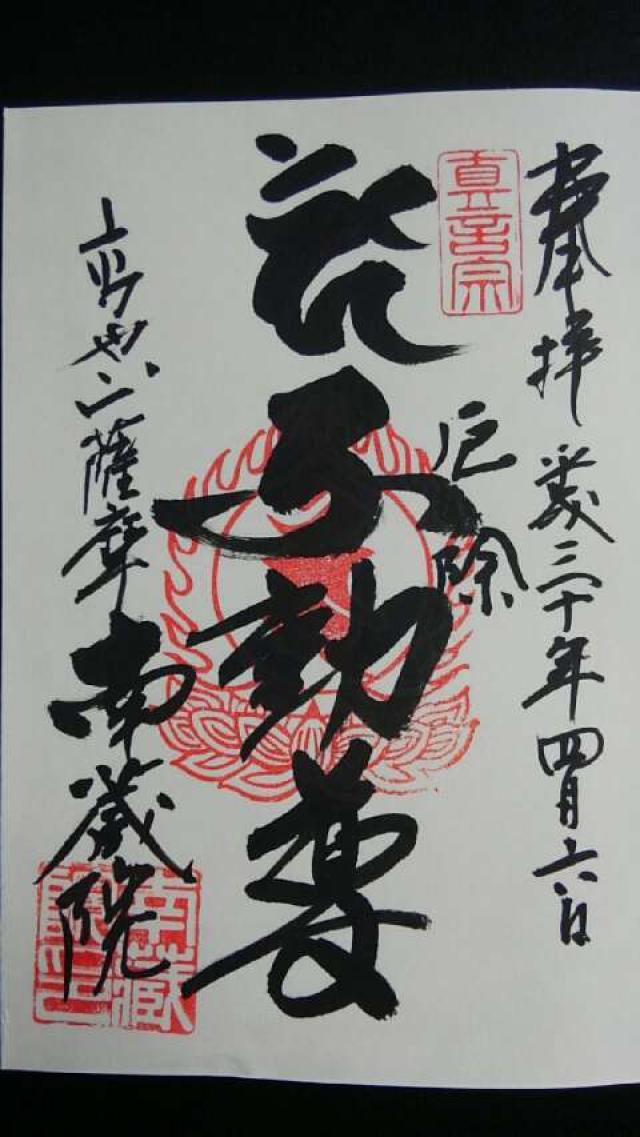 奉拝 平成三十年四月六日
真言宗
厄除
不動尊
薩摩 南蔵院
南藏院印